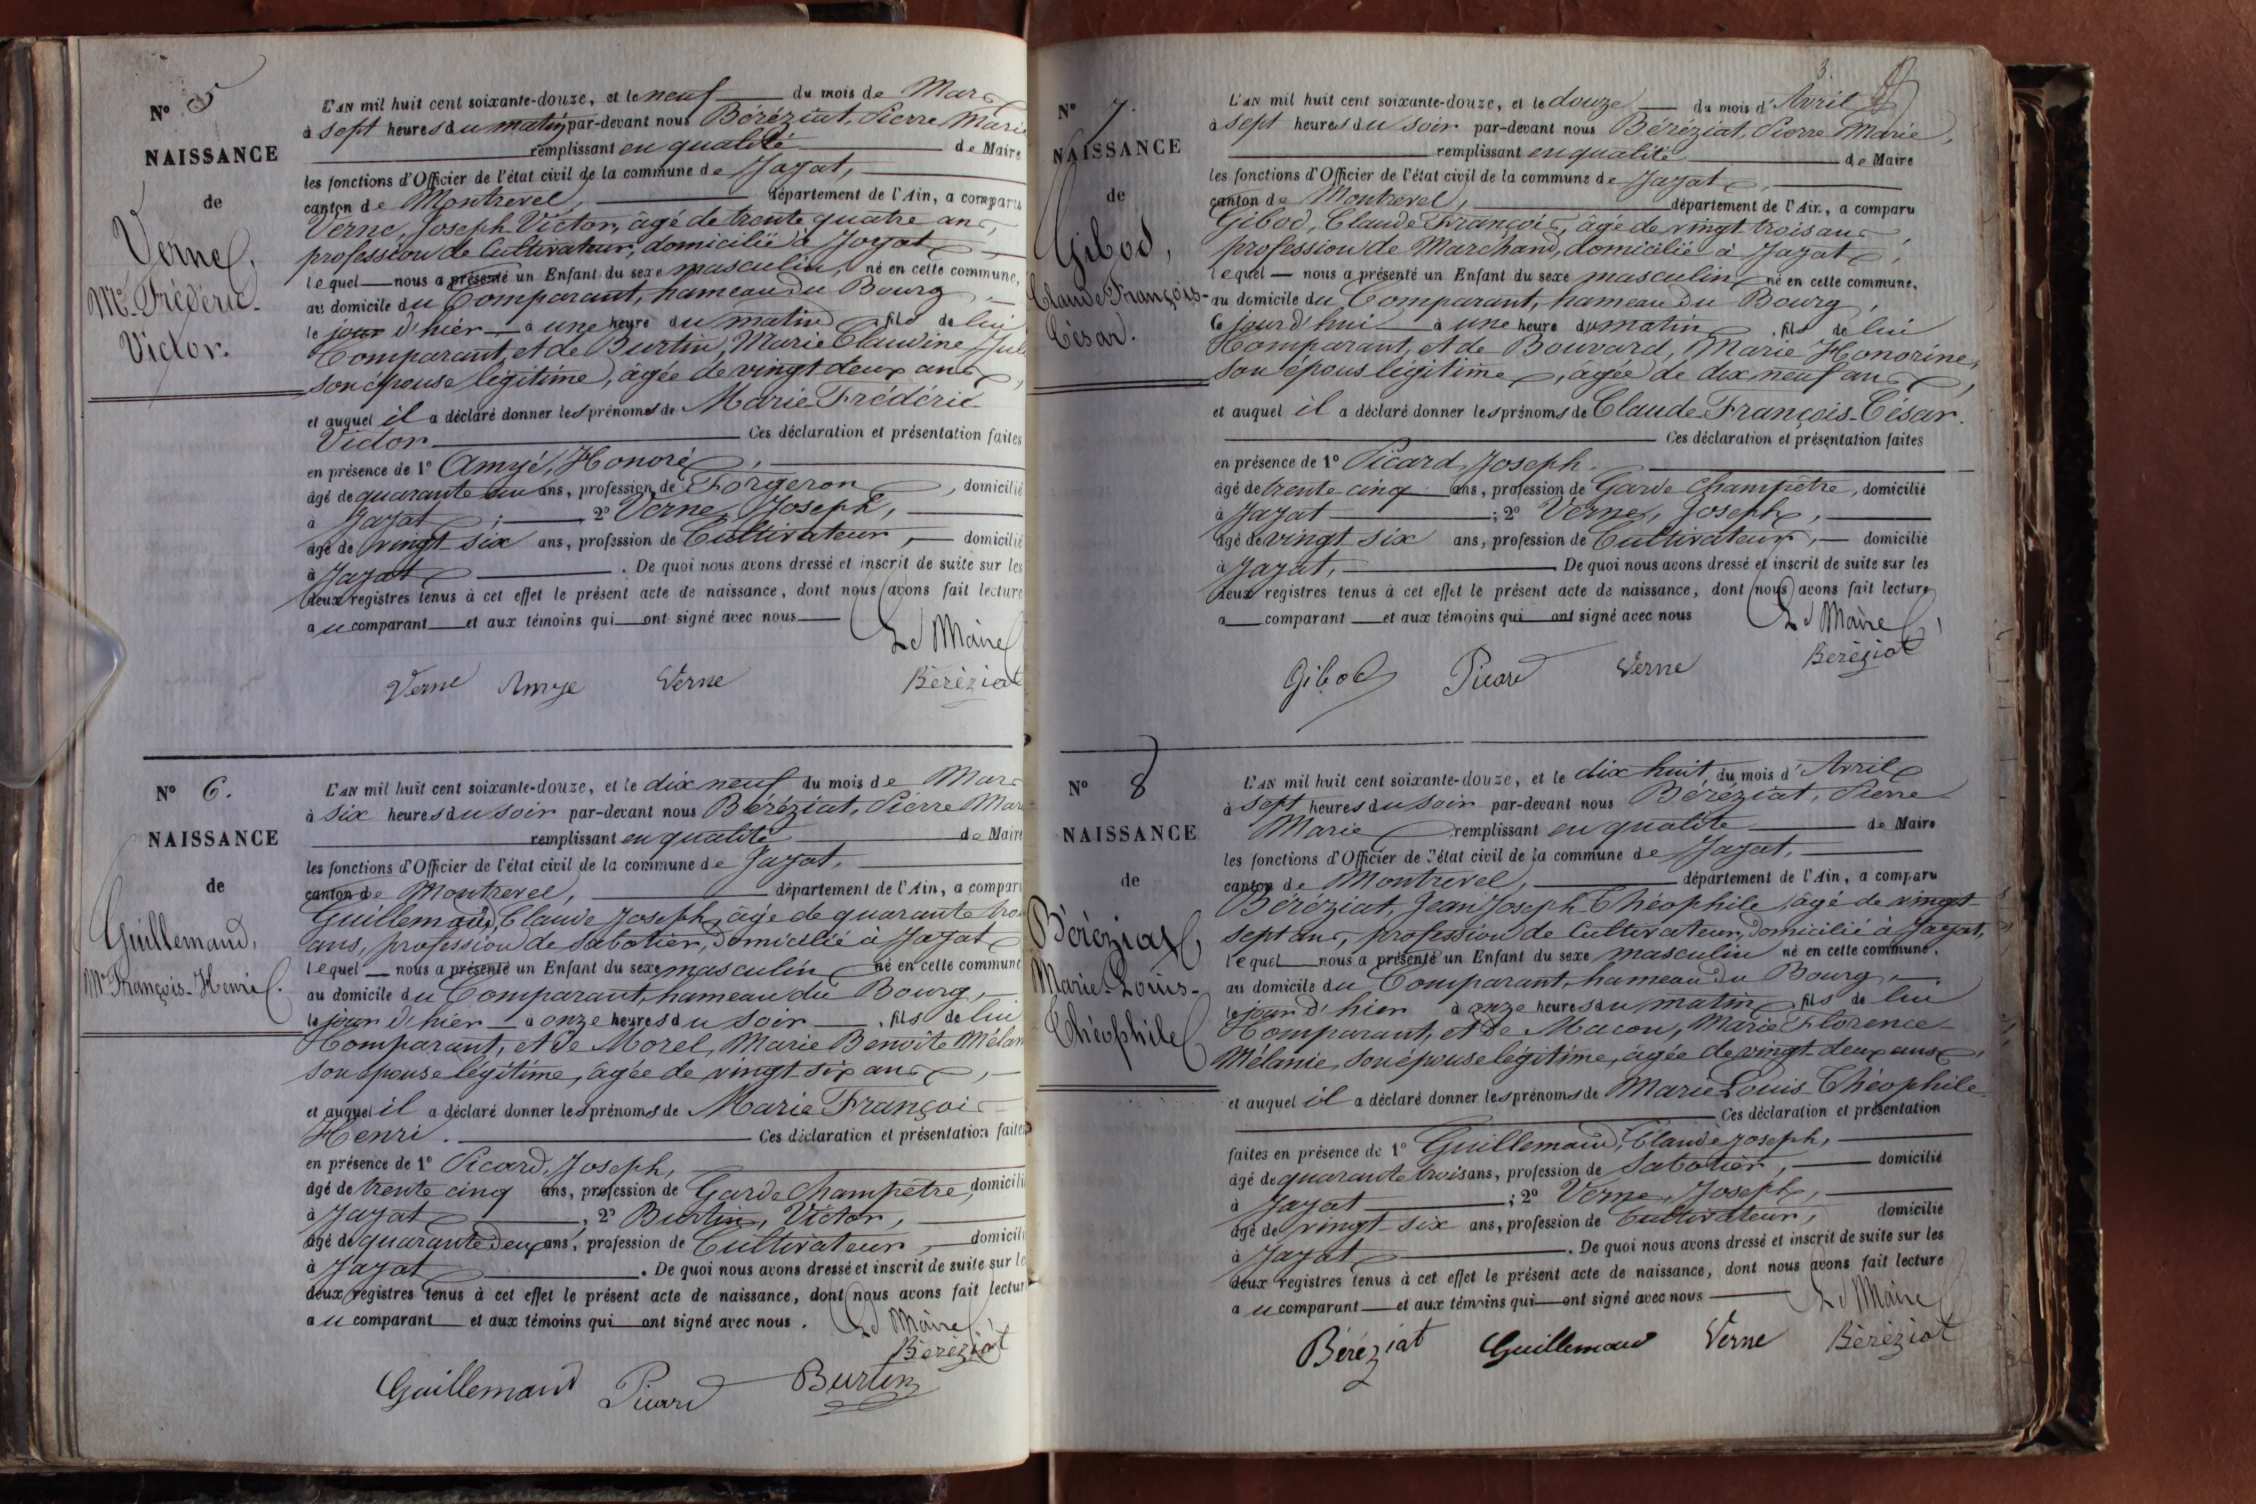 N° 5
NAISSANCE
de
Verne,
Mie Frédéric-
Victor.
L'AN mil huit cent soixante-douze, et le neuf du mois de Mars
à sept heures du matin par-devant nous Béréziat, Pierre Marie
remplissant en qualité de Maire
les fonctions d'Officier de l'état civil de la commune de Jayat,
canton de Montrevel, département de l'Ain, a comparu
Verne, Joseph Victor, âgé de trente quatre ans,
profession de Cultivateur, domicilié à Jayat
lequel nous a présenté un Enfant du sexe masculin, né en cette commune,
au domicile du Comparant, hameau du Bourg,
le jour d'hier à une heure du matin, fils de lui
Comparant, et de Burtin, Marie Claudine
son épouse légitime, âgée de vingt deux ans,
et auquel il a déclaré donner les prénoms de Marie Frédéric-
Victor Ces déclaration et présentation faites
en présence de 1° Amyé, Honoré,
âgé de quarante un ans, profession de Forgeron, domicilié
à Jayat ; 2° Verne, Joseph,
âgé de vingt six ans, profession de Cultivateur, domicilié
à Jayat. De quoi nous avons dressé et inscrit de suite sur les
deux registres tenus à cet effet le présent acte de naissance, dont nous avons fait lecture
au comparant et aux témoins qui ont signé avec nous
Le Maire
Verne Amye Verne Béréziat
N° 6.
NAISSANCE
de
Guillemaud,
Mie François-Henri.
L'AN mil huit cent soixante-douze, et le dix neuf du mois de Mars
à six heures du soir par-devant nous Béréziat, Pierre Mar
remplissant en qualité de Maire
les fonctions d'Officier de l'état civil de la commune de Jayat,
canton de Montrevel, département de l'Ain, a comparu
Guillemaud, Claude Joseph, âgé de quarante trois
ans, profession de Sabotier, domicilié à Jayat
lequel nous a présenté un Enfant du sexe masculin né en cette commune
au domicile du Comparant, hameau du Bourg,
le jour d'hier à onze heures du soir, fils de lui
Comparant, et de Morel, Marie Benoîte Mélan
son épouse légitime, âgée de vingt six ans,
et auquel il a déclaré donner les prénoms de Marie François
Henri. Ces déclaration et présentation faites
en présence de 1° Picard, Joseph,
âgé de trente cinq ans, profession de Garde Champêtre, domicilié
à Jayat ; 2° Burtin, Victor,
âgé de quarante deux ans, profession de Cultivateur, domicilié
à Jayat. De quoi nous avons dressé et inscrit de suite sur les
deux registres tenus à cet effet le présent acte de naissance, dont nous avons fait lecture
au comparant et aux témoins qui ont signé avec nous.
Le Maire
Béréziat
Guillemaud Picard Burtin
3.
N° 7.
NAISSANCE
de
Gibod,
Claude François-
César.
L'AN mil huit cent soixante-douze, et le douze du mois d'Avril
à sept heures du soir par-devant nous Béréziat, Pierre Marie,
remplissant en qualité de Maire
les fonctions d'Officier de l'état civil de la commune de Jayat,
canton de Montrevel, département de l'Ain, a comparu
Gibod, Claude François, âgé de vingt trois ans,
profession de Marchand, domicilié à Jayat,
lequel nous a présenté un Enfant du sexe masculin né en cette commune,
au domicile du Comparant, hameau du Bourg,
le jour d'hui à une heure du matin, fils de lui
Comparant, et de Bouvard, Marie Honorine,
son épous légitime, âgée de dix neuf ans,
et auquel il a déclaré donner les prénoms de Claude François-César.
Ces déclaration et présentation faites
en présence de 1° Picard, Joseph.
âgé de trente cinq ans, profession de Garde Champêtre, domicilié
à Jayat ; 2° Verne, Joseph,
âgé de vingt six ans, profession de Cultivateur, domicilié
à Jayat, De quoi nous avons dressé et inscrit de suite sur les
deux registres tenus à cet effet le présent acte de naissance, dont nous avons fait lecture
a comparant et aux témoins qui ont signé avec nous
Le Maire
Gibod Picard Verne Béréziat
N° 8
NAISSANCE
de
Béréziat
Marie-Louis-
Théophile
L'AN mil huit cent soixante-douze, et le dix huit du mois d'Avril
à sept heures du soir par-devant nous Béréziat, Pierre
Marie remplissant en qualité de Maire
les fonctions d'Officier de l'état civil de la commune de Jayat,
canton de Montrevel, département de l'Ain, a comparu
Béréziat, Jean Joseph Théophile, âgé de vingt
sept ans, profession de Cultivateur, domicilié à Jayat,
lequel nous a présenté un Enfant du sexe masculin né en cette commune.
au domicile du Comparant, hameau du Bourg,
le jour d'hier à onze heures du matin, fils de lui
Comparant, et de Macon, Marie Florence
Mélanie, son épouse légitime, âgée de vingt deux ans,
et auquel il a déclaré donner les prénoms de Marie Louis Théophile
Ces déclaration et présentation
faites en présence de 1° Guillemaud, Claude Joseph,
âgé de quarante trois ans, profession de Sabotier, domicilié
à Jayat ; 2° Verne, Joseph,
âgé de vingt six ans, profession de Cultivateur, domicilié
à Jayat. De quoi nous avons dressé et inscrit de suite sur les
deux registres tenus à cet effet le présent acte de naissance, dont nous avons fait lecture
au comparant et aux témoins qui ont signé avec nous
Le Maire
Béréziat Guillemaud Verne Béréziat